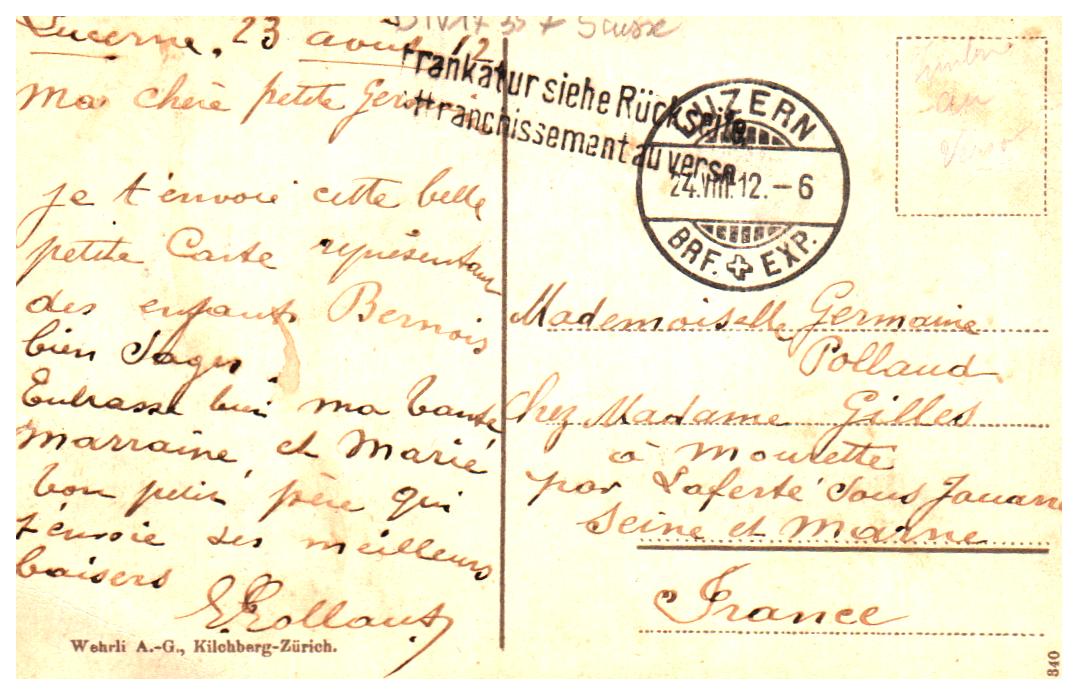 Lucerne, 23 août 12
Ma chère petite
je t'envoie cette belle
petite Carte représentant
des enfants Bernois
bien Sages
Embrasse bien ma bonne
Marraine, et Marie
bon petit père qui
t'envoie ses meilleurs
baisers
Wehrli A.-G., Kilchberg-Zürich.
Suisse
Frankatur siehe Rückseite
Affranchissement au verso
LUZERN
24.VIII.12.-6
BRF. EXP.
Timbre
au
Verso
Mademoiselle Germaine
Pollaud
Chez Madame Gilles
à Mourette
par Laferté sous Jouarre
Seine et Marne
France
840